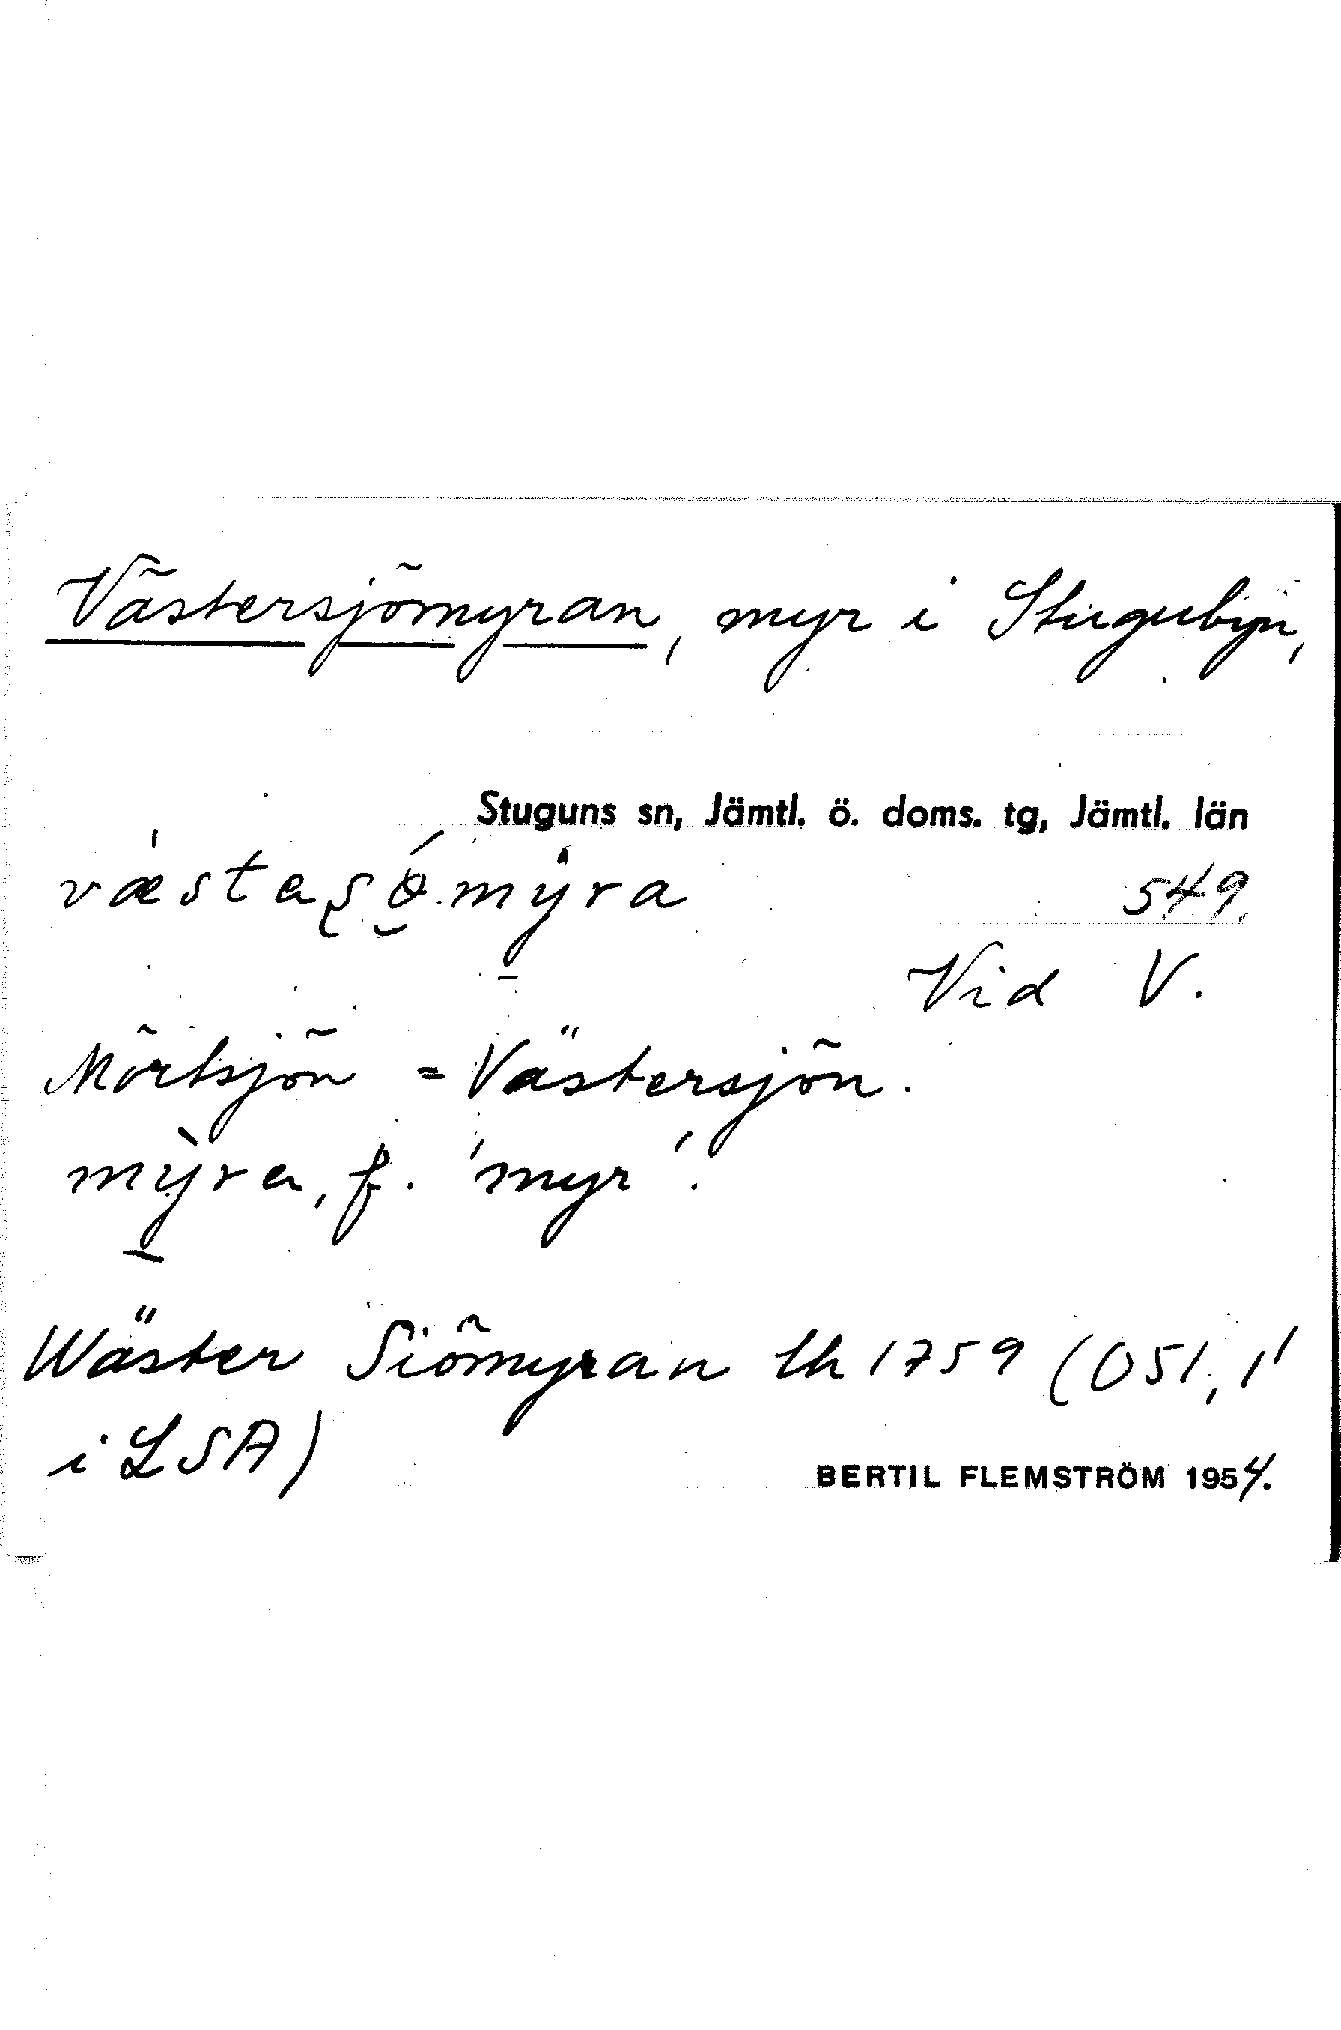 Västersjömyran, myr i Stugubyn,
Stuguns sn, Jämtl. ö. doms. tg, Jämtl. län
549.
Vid V.
Mörtsjön = Västersjön.
myra, f. 'myr'.
Wäster Siömyran lh 1759 (O51, 1'
i LSA)
BERTIL FLEMSTRÖM 1954.